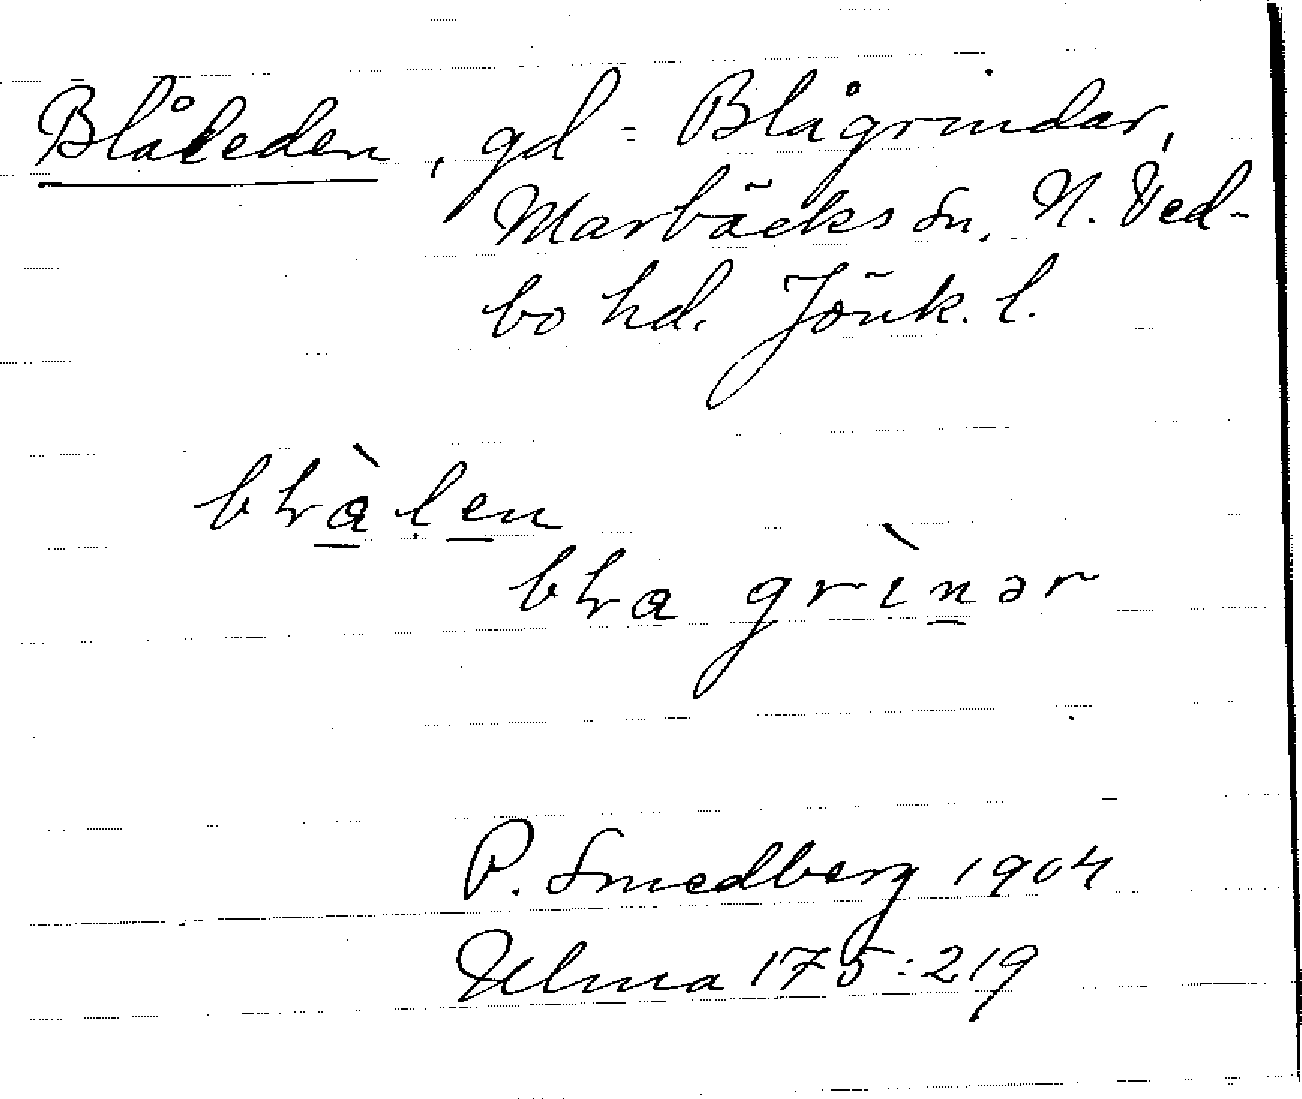 Blåleden, gd = Blågrindar,
Marbäcks sn, N. Ved-
bo hd. Jönk. l.
blràlen
blra grìnər
P. Smedberg 1904
Ulma 175:219